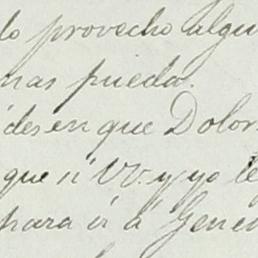 lo provecho algu
mas pueda.
des en que Dolor
que si VV. y yo le
para ir á Gene